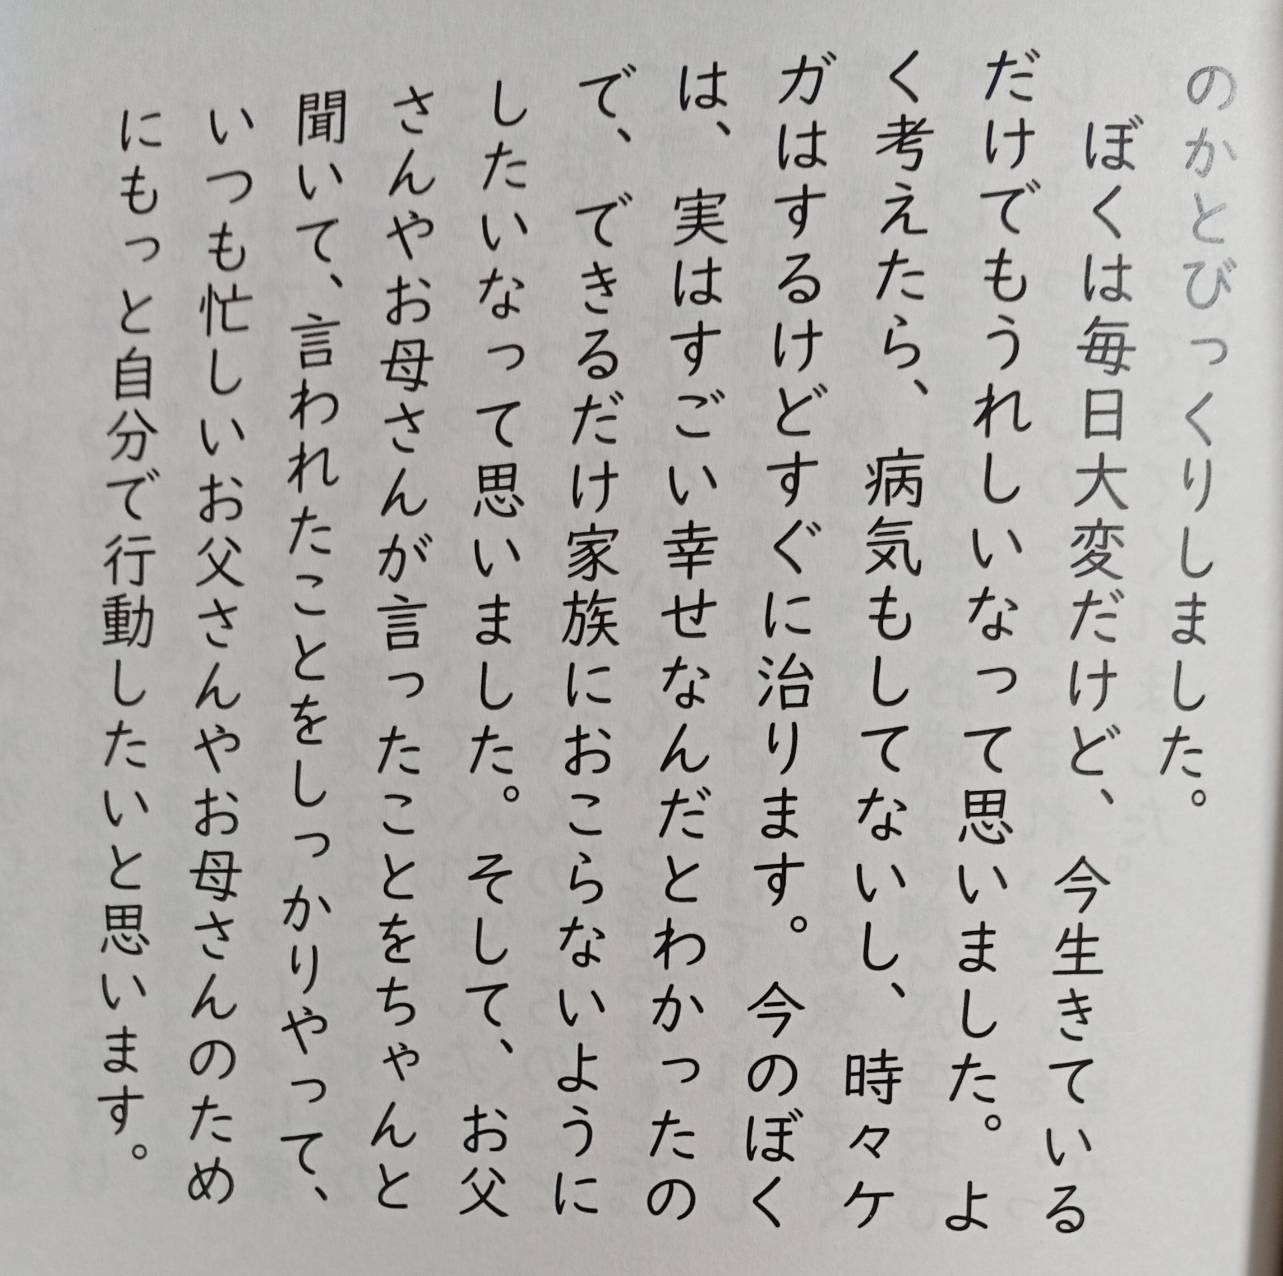 のかとびっくりしました。
ぼくは毎日大変だけど、今生きている
だけでもうれしいなって思いました。よ
く考えたら、病気もしてないし、時々ケ
ガはするけどすぐに治ります。今のぼく
は、実はすごい幸せなんだとわかったの
で、できるだけ家族におこらないように
したいなって思いました。そして、お父
さんやお母さんが言ったことをちゃんと
聞いて、言われたことをしっかりやって、
いつも忙しいお父さんやお母さんのため
にもっと自分で行動したいと思います。